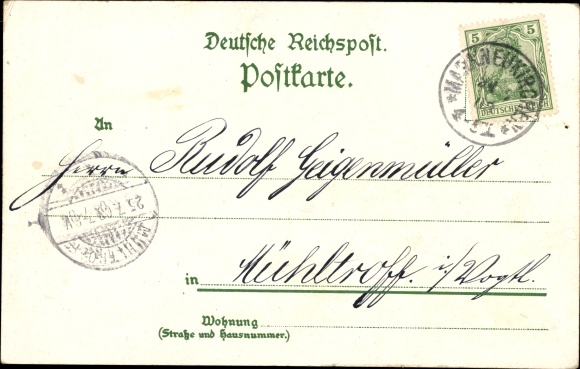 Deutsche Reichspost.
Postkarte.
5 5
DEUTSCHES
MARKNEUKIRCHEN
An
Herrn Rudolf Geigenmüller
in Mühltroff. i/Vogtl.
Wohnung
(Straße und Hausnummer.)